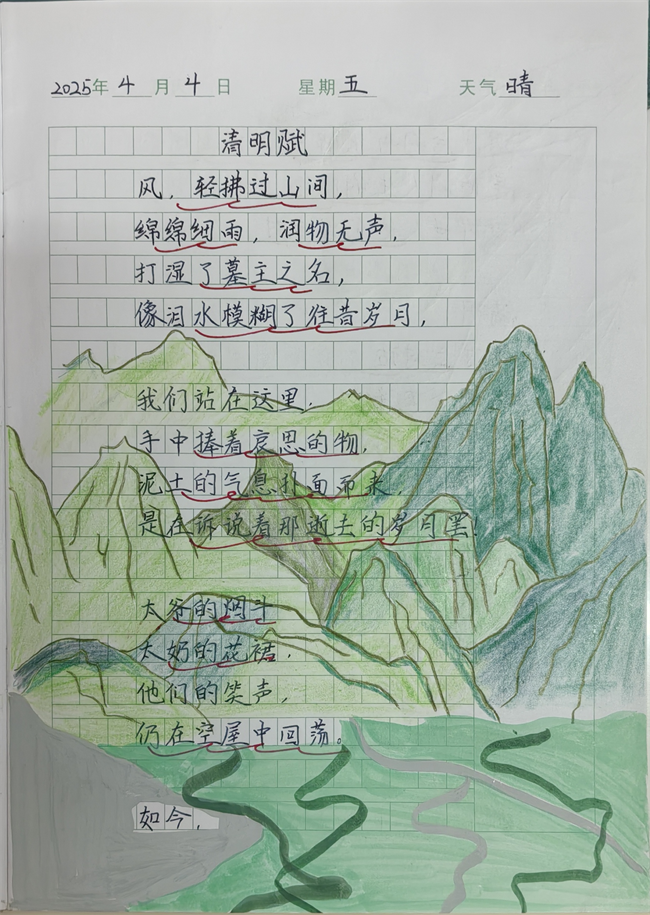 2025年4月4日 星期五 天气晴
清明赋
风，轻拂过山间，
绵绵细雨，润物无声，
打湿了墓主之名，
像泪水模糊了往昔岁月，
我们站在这里，
手中捧着哀思的物，
泥土的气息扑面而来，
是在诉说着那逝去的岁月罢！
太爷的烟斗
太奶的花裙，
他们的笑声，
仍在空屋中回荡。
如今，